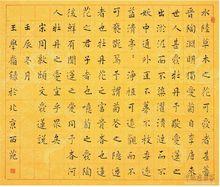 水陸草木之花可愛者甚蕃
晉陶淵明獨愛菊自李唐來
世人甚愛牡丹予獨愛蓮之
出淤泥而不染濯清漣而不
妖中通外直不蔓不枝香遠
益清亭亭淨植可遠觀而不
可褻玩焉予謂菊花之隱逸
者也牡丹花之富貴者也蓮
花之君子者也噫菊之愛陶
後鮮有聞蓮之愛同予者何
人牡丹之愛宜乎眾矣
宋周敦頤文愛蓮說
壬辰冬月
王 錄於北京西苑